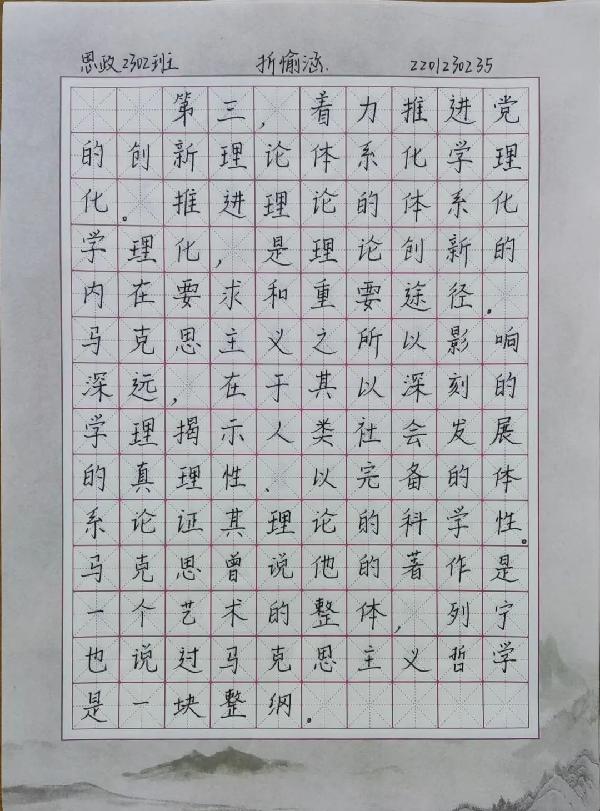 思政2302班 折愉涵. 2201230235
第三,着力推进党
的创新理论体系化学理
化。推进理论的体系化
学理化,是理论创新的
内在要求和重要途径。
马克思主义之所以影响
深远,在于其以深刻的
学理揭示人类社会发展
的真理性、以完备的体
系论证其理论的科学性。
马克思曾说他的著作是
一个艺术的整体,列宁
也说过马克思主义哲学
是一块整纲。